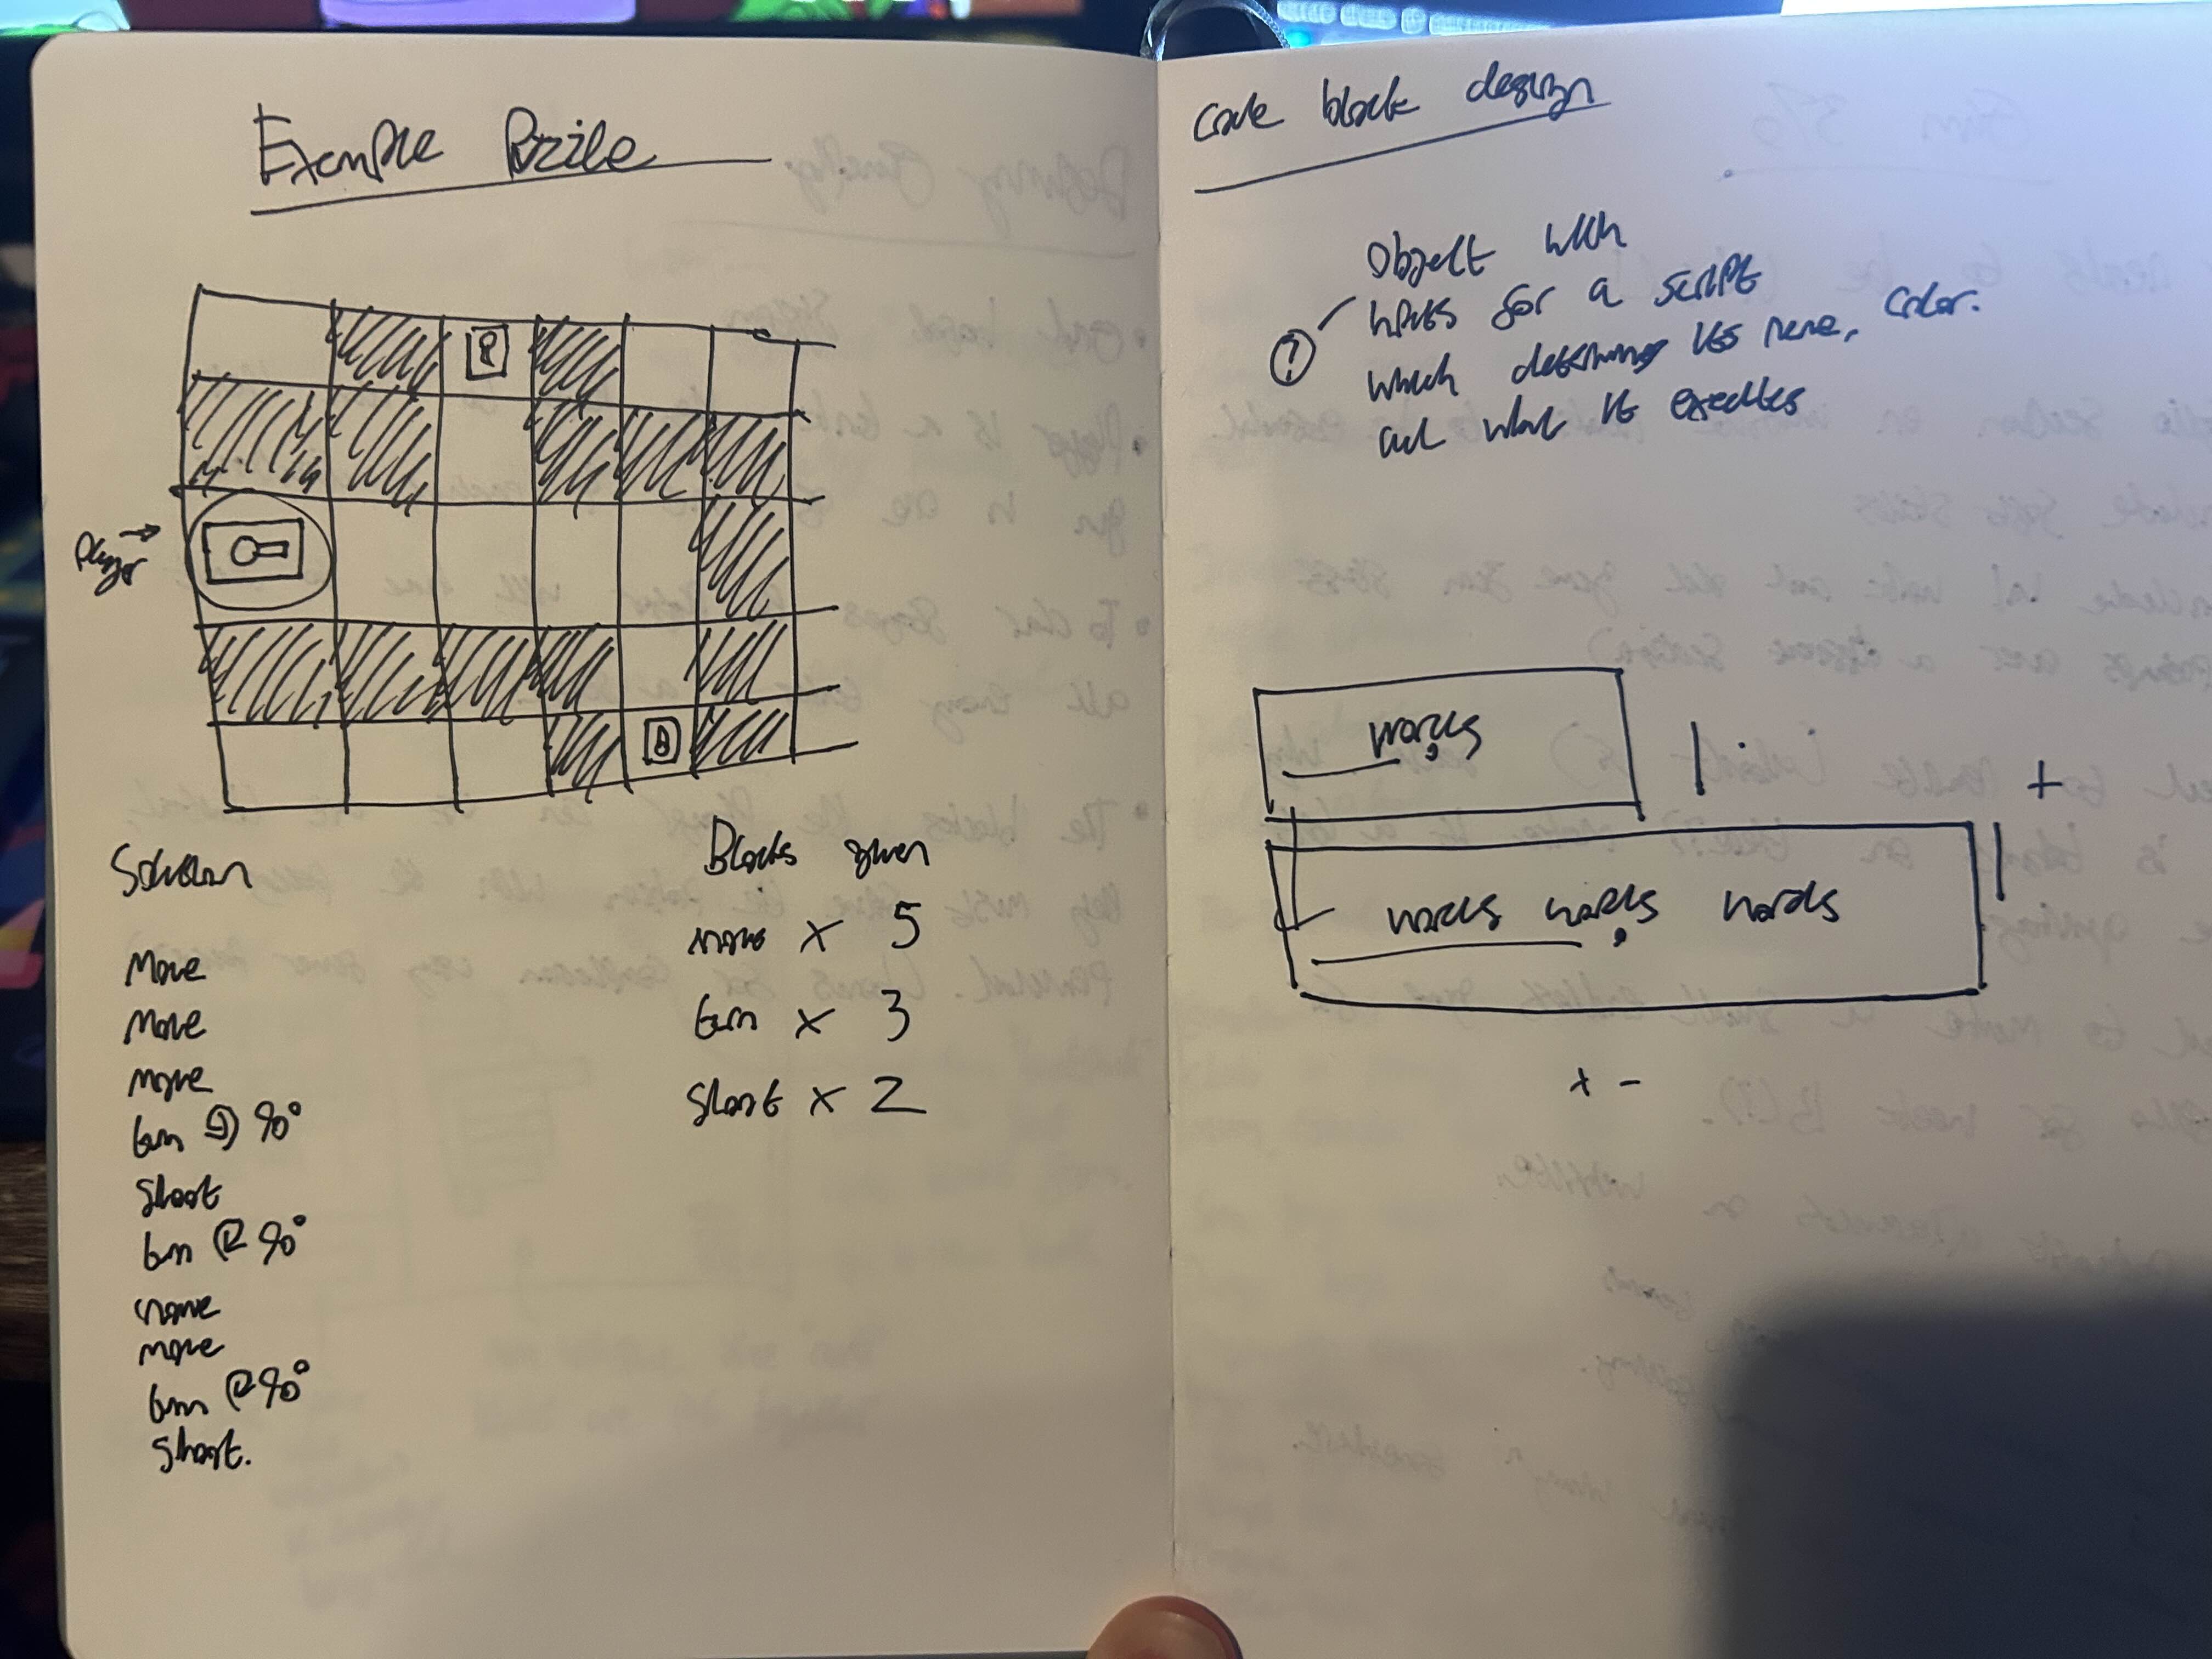 Example Puzzle
Player →
Solution
Move
Move
Move
turn 90°
Shoot
turn 90°
move
move
turn 90°
Shoot.
Blocks given
move x 5
turn x 3
Shoot x 2
Code block design
Object with
? inputs for a script
which determines its name, color.
and what it executes
words
words words words
+
+ -